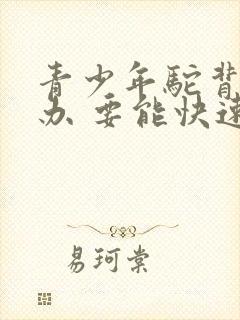 青少年驼背
办 要能快速
易珂棠